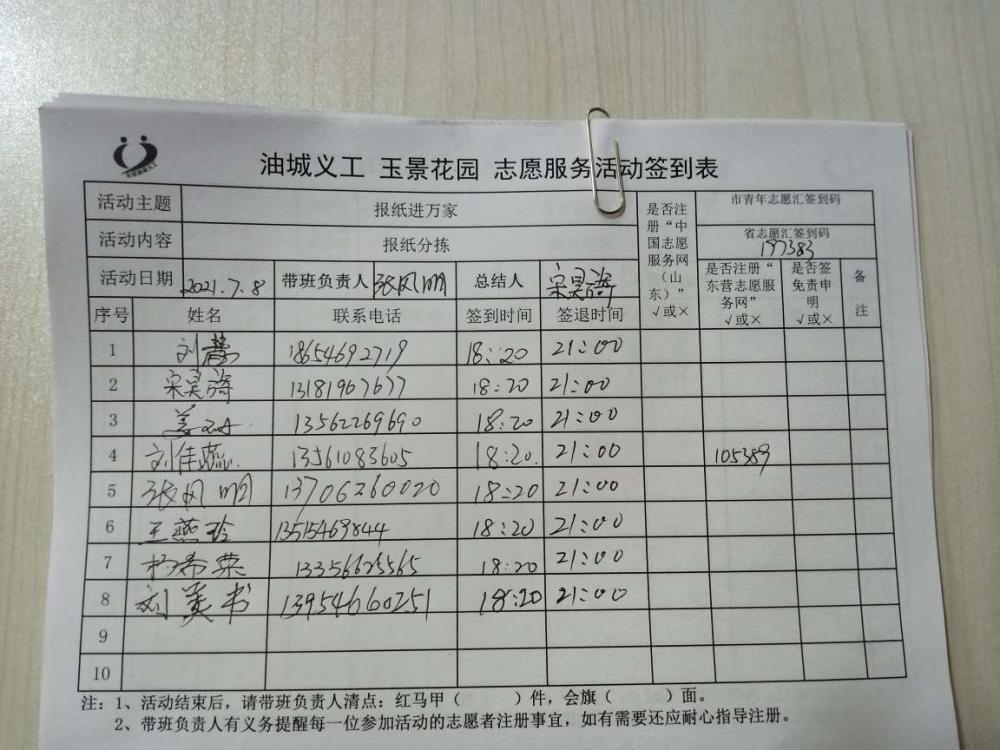 油城义工 玉景花园 志愿服务活动签到表
活动主题 报纸进万家 是否注册“中国志愿服务网（山东）”√或× 市青年志愿汇签到码
活动内容 报纸分拣 省志愿汇签到码 197383
活动日期 2021.7.8 带班负责人 张凤明 总结人 宋昊 是否注册“东营志愿服务网”√或× 是否签免责申明√或× 备注
序号 姓名 联系电话 签到时间 签退时间
1 刘慧 18654692719 18:20 21:00
2 宋昊 13181967677 18:20 21:00
3 姜 13562269690 18:20 21:00
4 刘佳蕊 13561083605 18:20 21:00 105389
5 张凤明 13706360020 18:20 21:00
6 王燕玲 13515469844 18:20 21:00
7 杨希荣 13356625565 18:20 21:00
8 刘美书 13954660251 18:20 21:00
9
10
注：1、活动结束后，请带班负责人清点：红马甲（ ）件，会旗（ ）面。
2、带班负责人有义务提醒每一位参加活动的志愿者注册事宜，如有需要还应耐心指导注册。